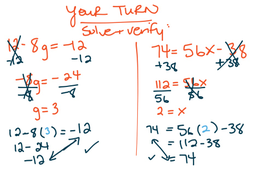 YOUR TURN
Solve + verify:
12 - 8g = -12
-12 -12
-8g = -24
-8 -8
g = 3
12 - 8(3) = -12
12 - 24
-12 ✓
74 = 56x - 38
+38 +38
112 = 56x
56 56
2 = x
74 = 56(2) - 38
= 112 - 38
✓ = 74